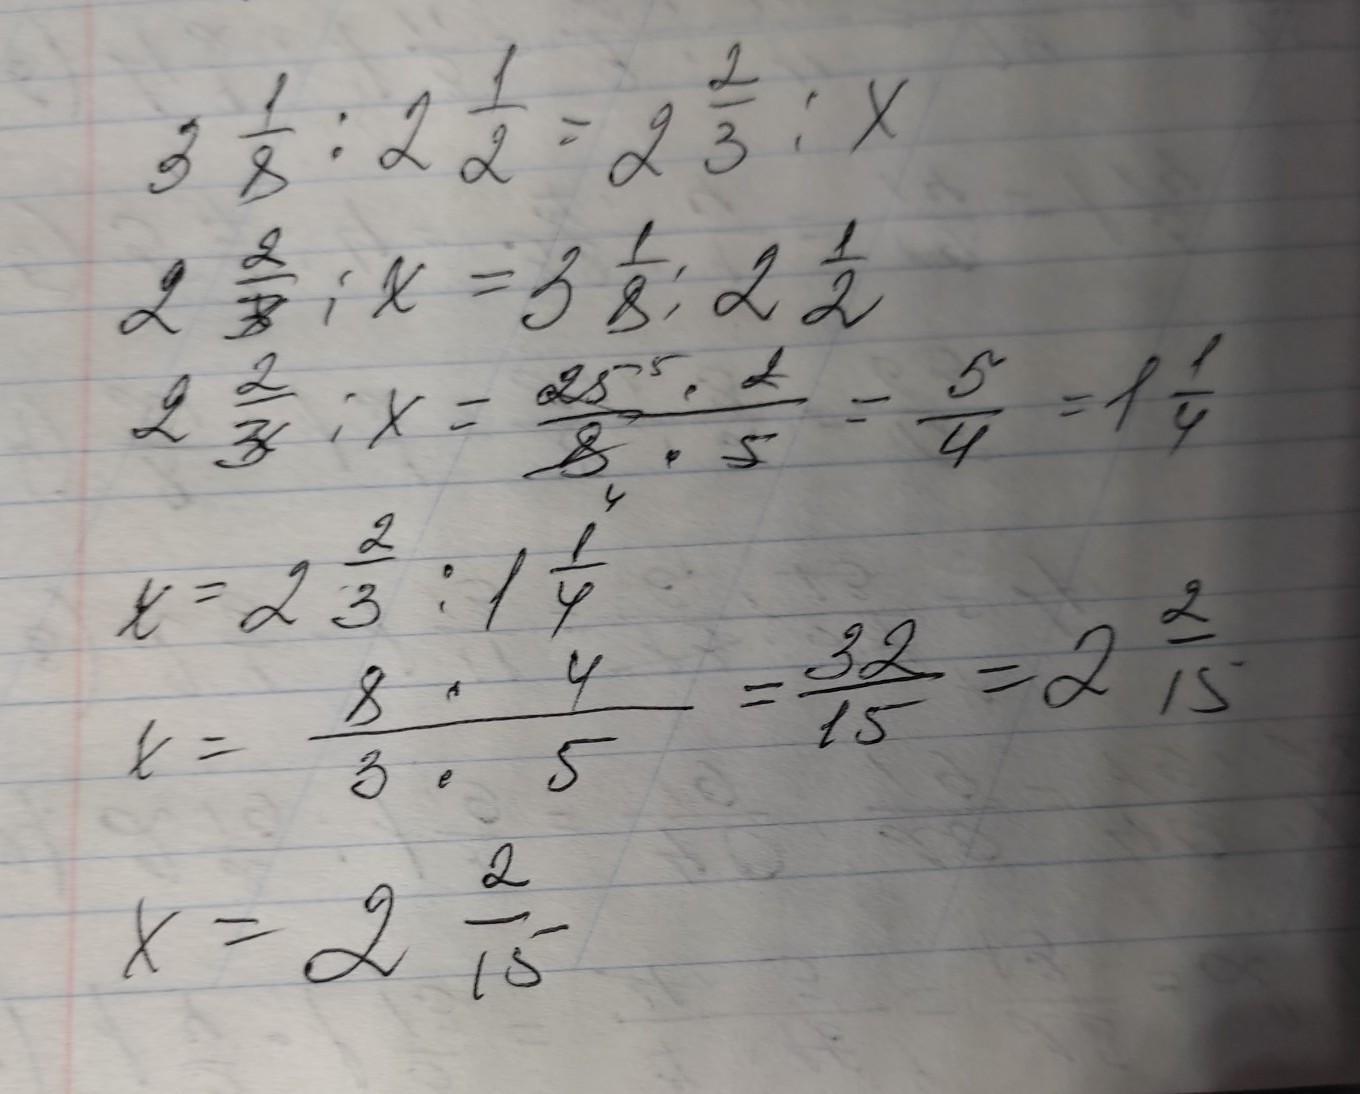 3 1/8 : 2 1/2 = 2 2/3 : x
2 2/3 : x = 3 1/8 : 2 1/2
2 2/3 : x = 25 5 · 2 / 8 4 · 5 = 5/4 = 1 1/4
x = 2 2/3 : 1 1/4
x = 8 · 4 / 3 · 5 = 32/15 = 2 2/15
x = 2 2/15